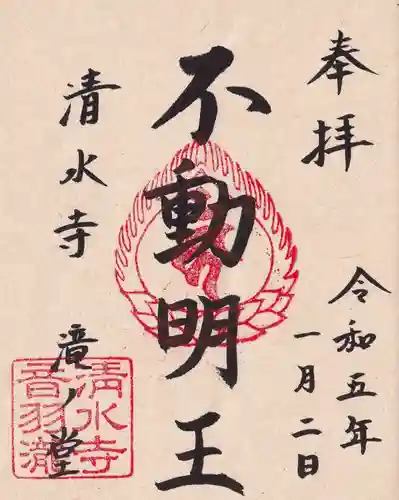 奉拝
令和五年
一月二日
不動明王
清水寺
滝ノ堂
清水寺
音羽瀧